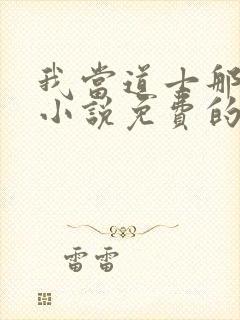 我當道士那
小說免費的
雷雷